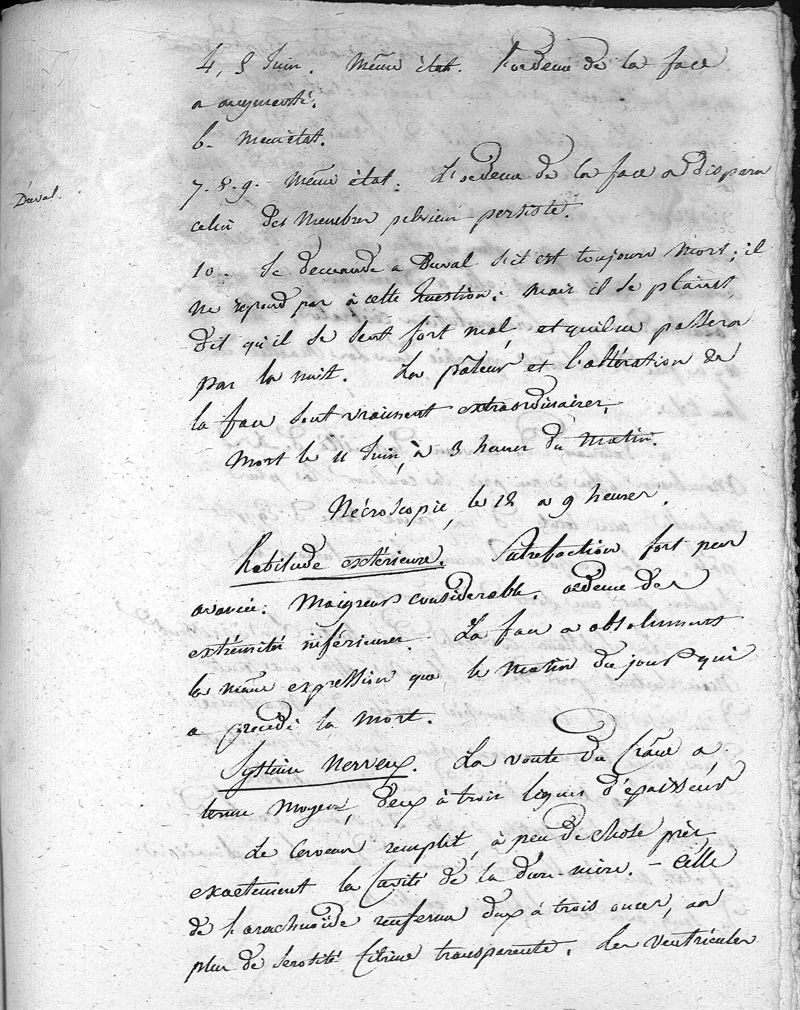 4, 5 Juin. Même état. l'oedeme de la face
a augmenté.
6. Meme état.
Duval.
7. 8. 9. même état. L'oedeme de la face a disparu
celui des membres pelviens persiste.
10. Je demande a Duval s'il est toujours mort; il
ne repond pas à cette question; mais il se plaint,
dit qu'il se sent fort mal, et qu'il ne passera
pas la nuit. La pâleur et l'altération de
la face sont vraiment extraordinaires.
Mort le 11 Juin, à 3 heures du matin.
Nécroscopie, le 12 a 9 heures.
habitude extérieure. Putrefaction fort peu
avancée. Maigreur considerable. oedeme des
extrémités inférieures. La face a absolument
la même expression que le matin du jour qui
a precedé la mort.
Systeme nerveux. La voute du Crâne a,
terme moyen, deux à trois lignes d'épaisseur
Le Cerveau remplit, à peu de chose près,
exactement la Cavité de la dure-mère. - Celle
de l'arachnoïde renferme deux à trois onces, au
plus de serosité citrine transparente. Les ventricules